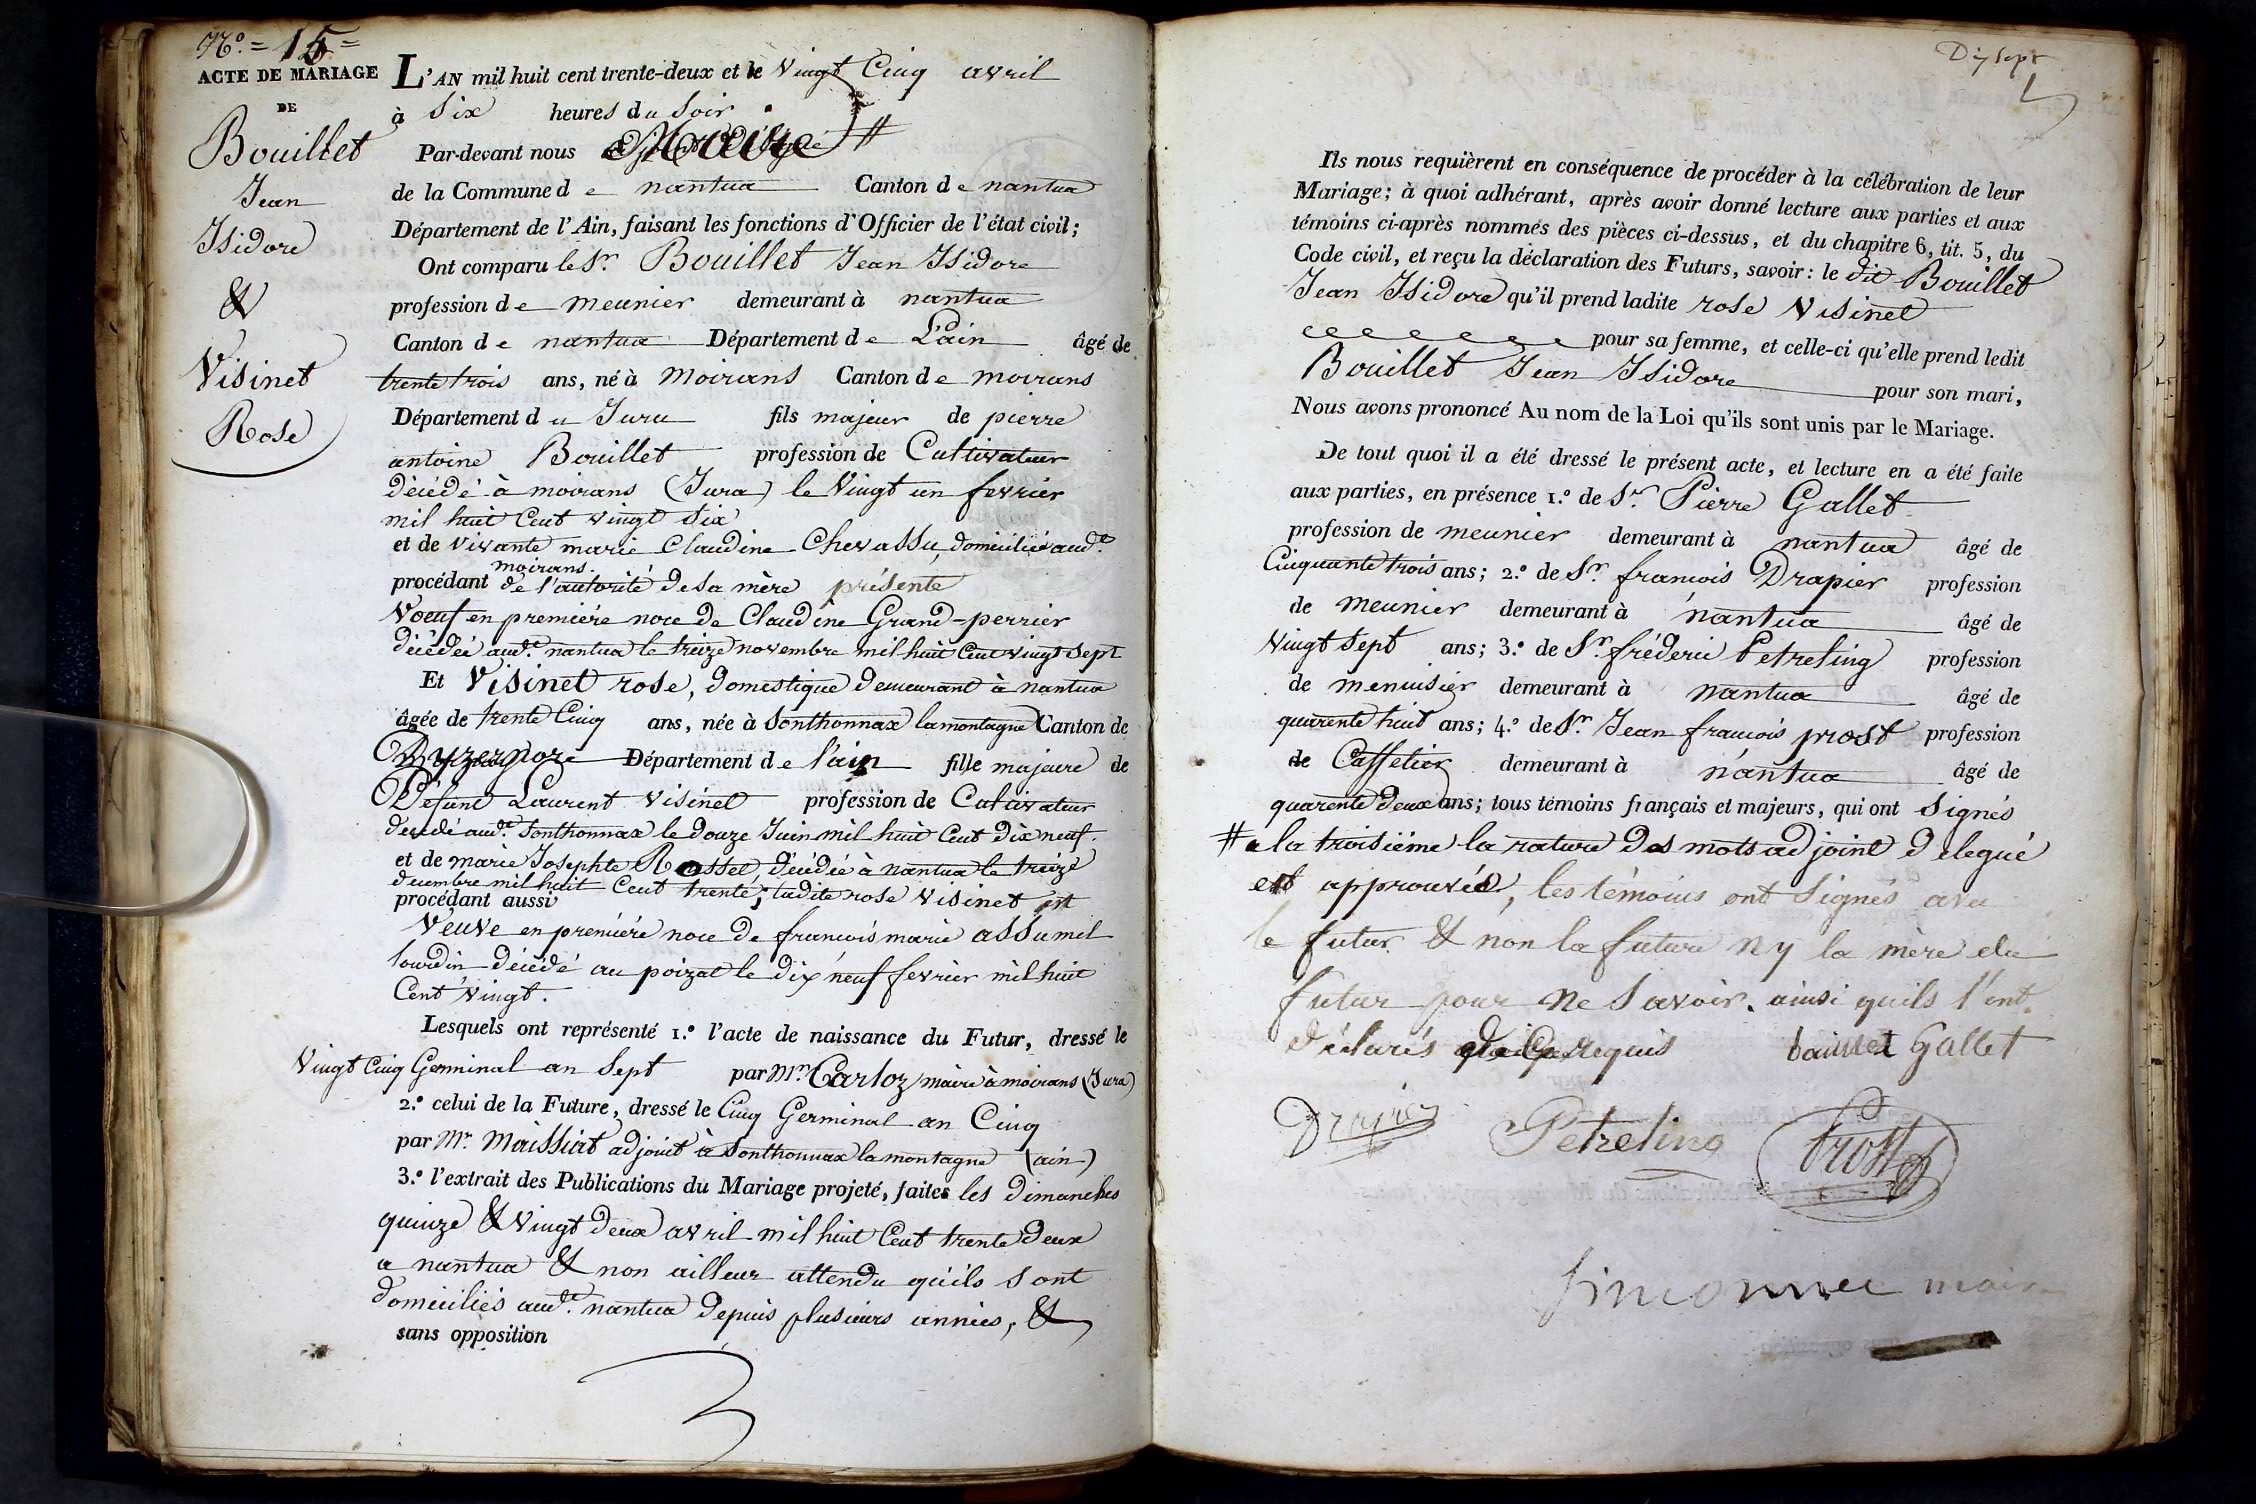 N.º = 15 =
ACTE DE MARIAGE
DE
Bouillet
Jean
Isidore
&
Visinet
Rose
L'AN mil huit cent trente-deux et le vingt Cinq avril
à Six heures du Soir
Par-devant nous Maire #
de la Commune de nantua Canton de nantua
Département de l'Ain, faisant les fonctions d'Officier de l'état civil;
Ont comparu le Sr. Bouillet Jean Isidore
profession de meunier demeurant à nantua
Canton de nantua Département de L'ain âgé de
trente trois ans, né à Moirans Canton de moirans
Département du Jura fils majeur de pierre
antoine Bouillet profession de Cultivateur
décédé à moirans (Jura) le Vingt un fevrier
mil huit Cent vingt Six
et de vivante marie Claudine Chevassu, domiciliée aud.t
moirans.
procédant de l'autorité de sa mère présente
Voeuf en première noce de Claudine Grand-perrier
décédée aud.t nantua le treize novembre mil huit Cent vingt Sept
Et Visinet rose, domestique demeurant à nantua
âgée de trente Cinq ans, née à Sonthonnax lamontagne Canton de
Dyzernore Département de l'ain fille majeure de
Défunt Laurent Visinet profession de Cultivateur
décédé aud.t Sonthonnax le douze Juin mil huit Cent Dix neuf
et de marie Josephte Rossel, décédée à nantua le treize
decembre mil huit Cent trente; ladite rose Visinet est
procédant aussi
Veuve en première noce de francois marie assumel
lourdin décédé au poizat le dix neuf fevrier mil huit
Cent Vingt.
Lesquels ont représenté 1.º l'acte de naissance du Futur, dressé le
Vingt Cinq Germinal an Sept par Mr. Carloz maire à moirans (Jura)
2.º celui de la Future, dressé le Cinq Germinal an Cinq
par Mr. Maissiat adjoint à Sonthonnax lamontagne (ain)
3.º l'extrait des Publications du Mariage projeté, faites les dimanches
quinze & Vingt deux avril mil huit Cent trente deux
a nantua & non ailleur attendu qu'ils Sont
domiciliés aud.t nantua depuis plusieurs années, &
sans opposition
Dix sept
Ils nous requièrent en conséquence de procéder à la célébration de leur
Mariage; à quoi adhérant, après avoir donné lecture aux parties et aux
témoins ci-après nommés des pièces ci-dessus, et du chapitre 6, tit. 5, du
Code civil, et reçu la déclaration des Futurs, savoir: le dit Bouillet
Jean Isidore qu'il prend ladite rose Visinet
pour sa femme, et celle-ci qu'elle prend ledit
Bouillet Jean Isidore pour son mari,
Nous avons prononcé Au nom de la Loi qu'ils sont unis par le Mariage.
De tout quoi il a été dressé le présent acte, et lecture en a été faite
aux parties, en présence 1.º de Sr. Pierre Gallet
profession de meunier demeurant à nantua âgé de
Cinquante trois ans; 2.º de Sr. francois Drapier profession
de meunier demeurant à nantua âgé de
Vingt Sept ans; 3.º de Sr. fréderic Petreling profession
de menuisier demeurant à nantua âgé de
quarente huit ans; 4.º de Sr. Jean francois prost profession
de Caffetier demeurant à nantua âgé de
quarente deux ans; tous témoins français et majeurs, qui ont Signés
# a la troisième la rature des mots adjoint délegué
est approuvée, les témoins ont Signés avec
le futur & non la future ny la mère du
futur pour ne Savoir. ainsi quils l'ont
déclarés de Ce requis bouillet Gallet
Drapier Petreling Prost
Simonnet maire